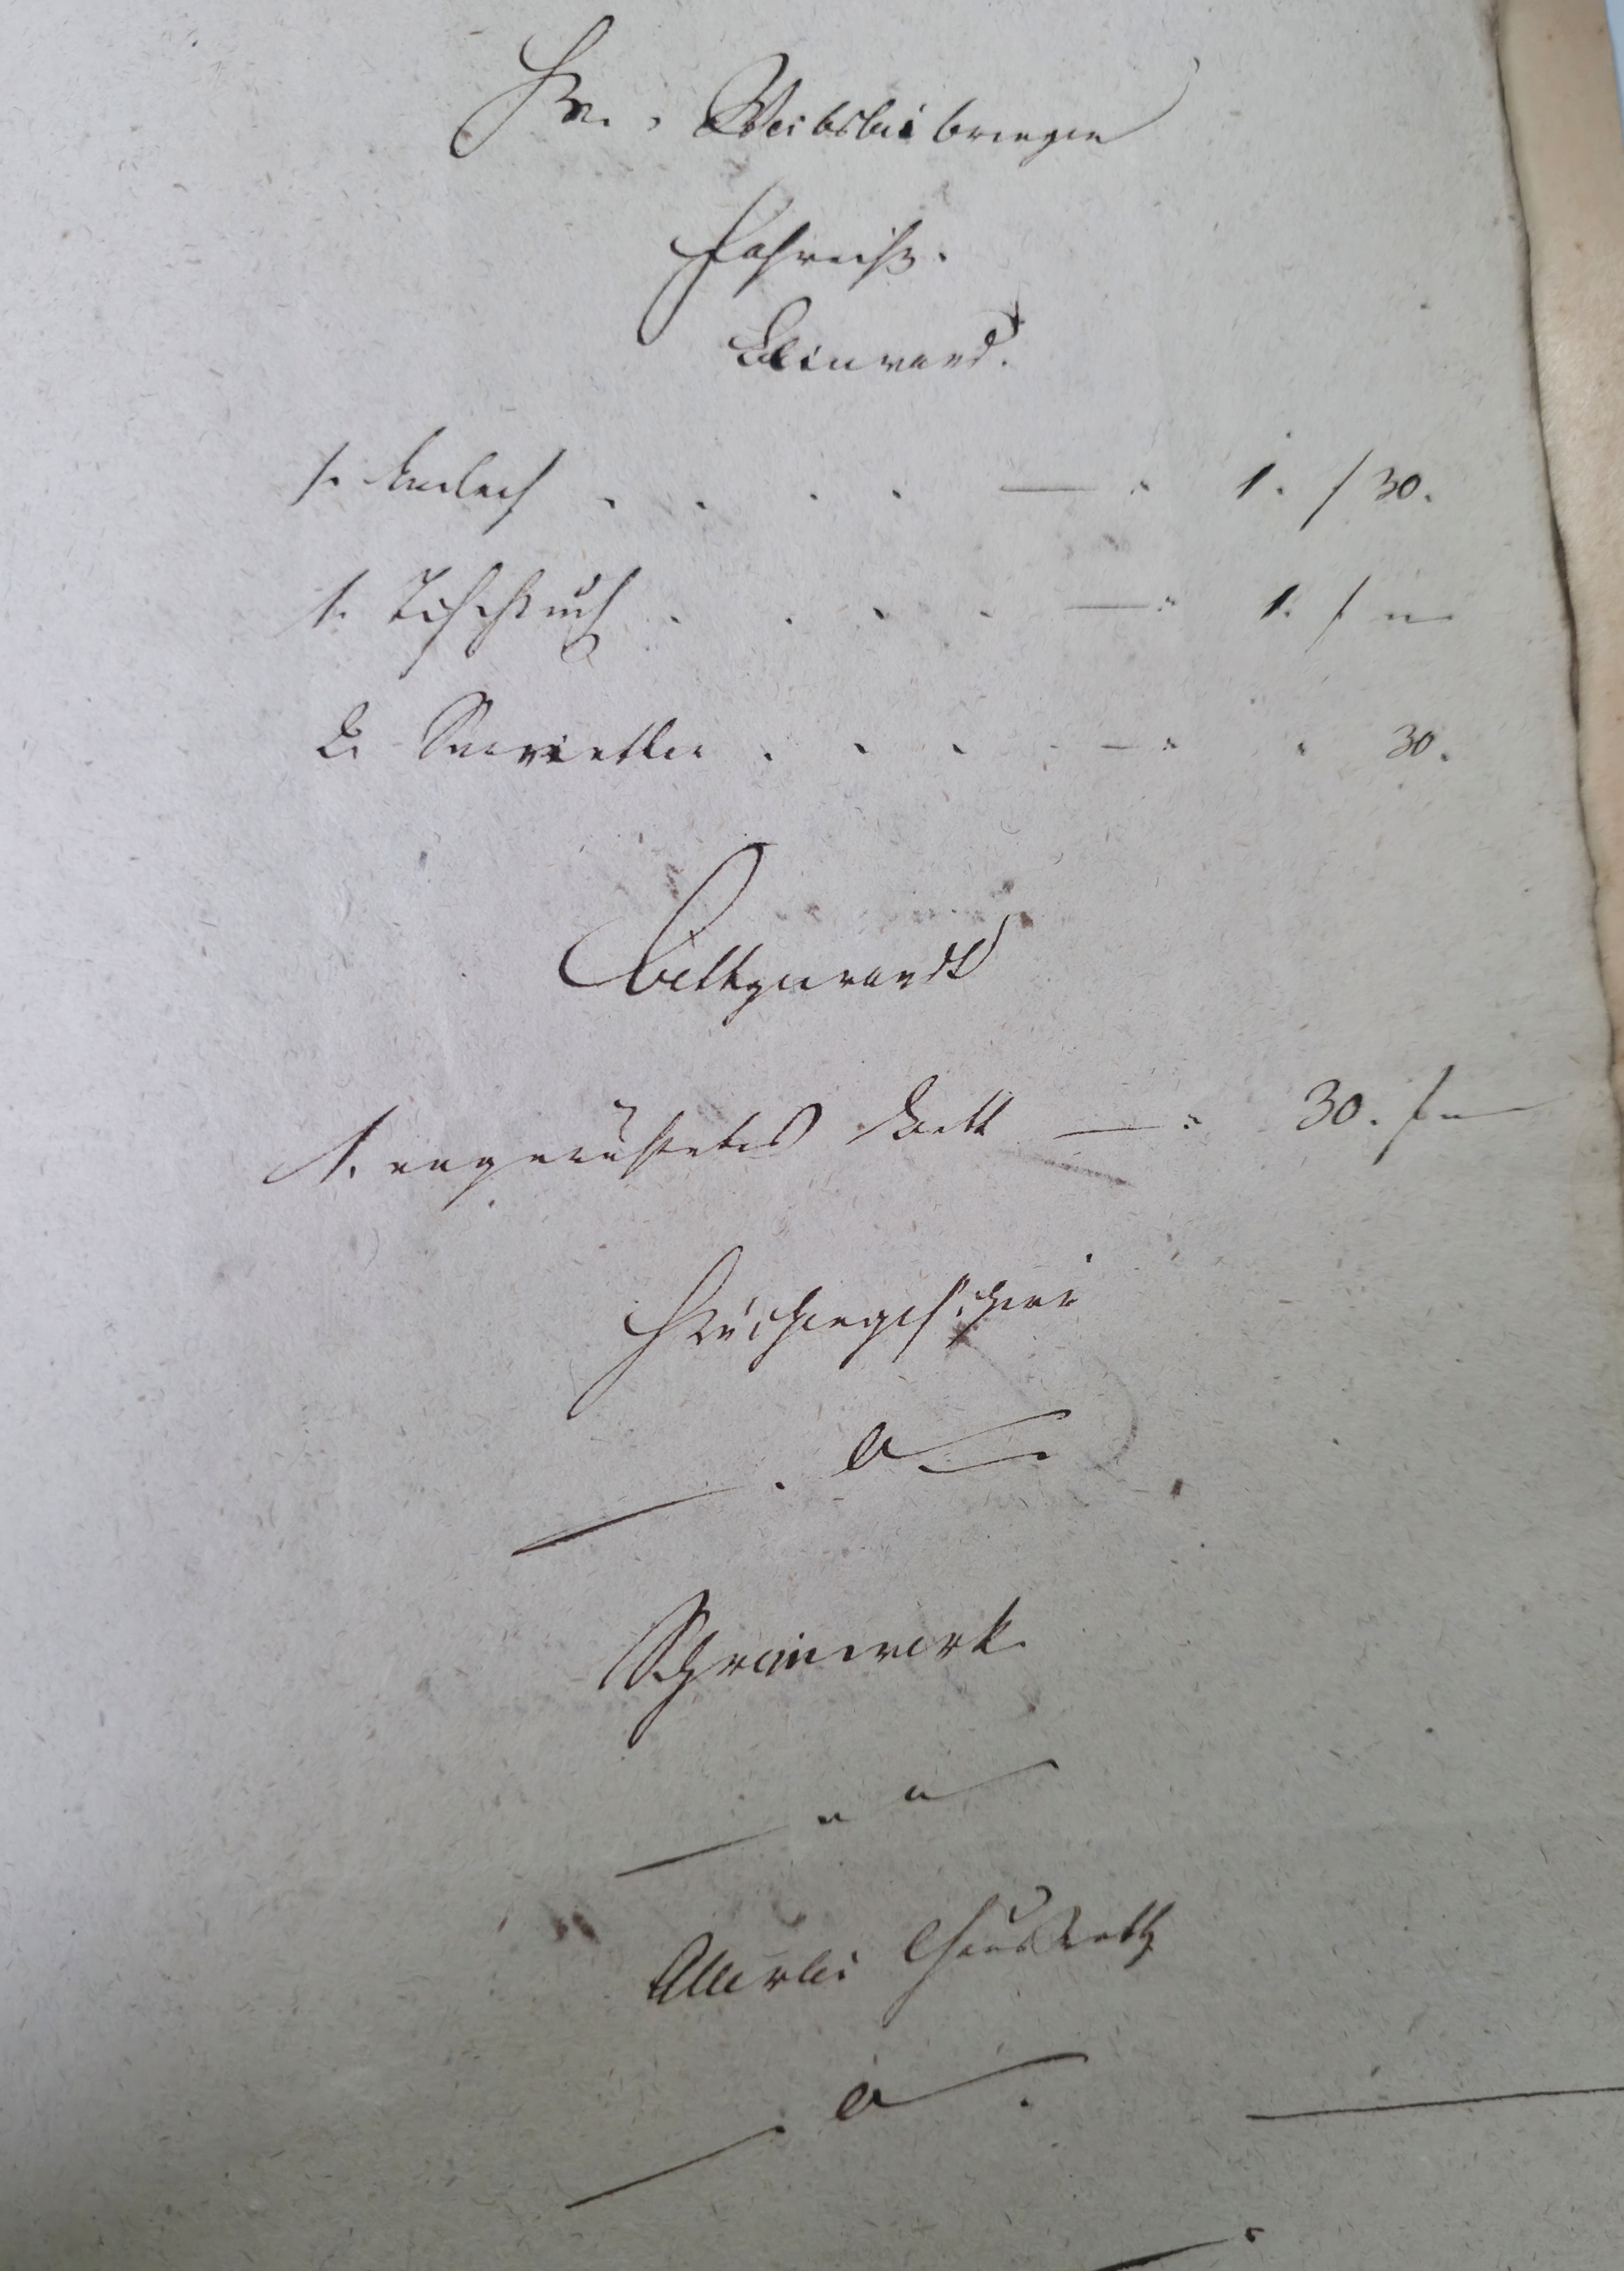 Weibsbeibringen
Fahrniß.
Leinwand.
1. Leilach . . . . — " 1. f 30.
1. Tischtuch . . . . — " 1. f "—
2. Servietten . . . . — " " 30.
Bettgewandt
1. angerüstetes Bett — " 30. f "—
Küchengeschirr
— . 0 —
Schreinwerk
— " " —
Allerlei Hausrath
— . 0 — .